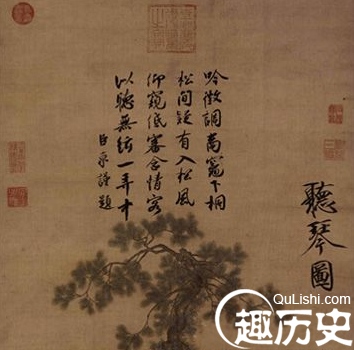 聽琴圖
吟徵調商竈下桐
松間疑有入松風
仰窺低審含情客
以聽無絃一弄中
臣京謹題
QuLishi.com
趣历史